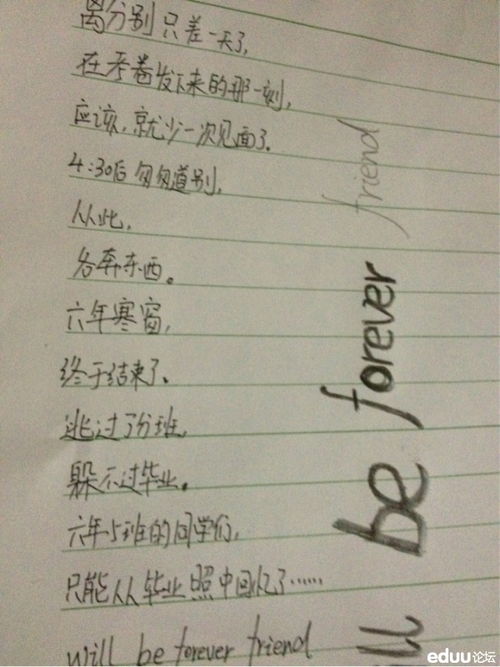 离分别只差一天了,
在考卷发下来的那一刻,
应该,就少一次见面了.
4:30后匆匆道别,
从此,
各奔东西。
六年寒窗,
终于结束了、
逃过了分班,
躲不过毕业。
六年5班的同学们,
只能从毕业照中回忆了……
will be forever friend
ll be forever friend
eduu论坛